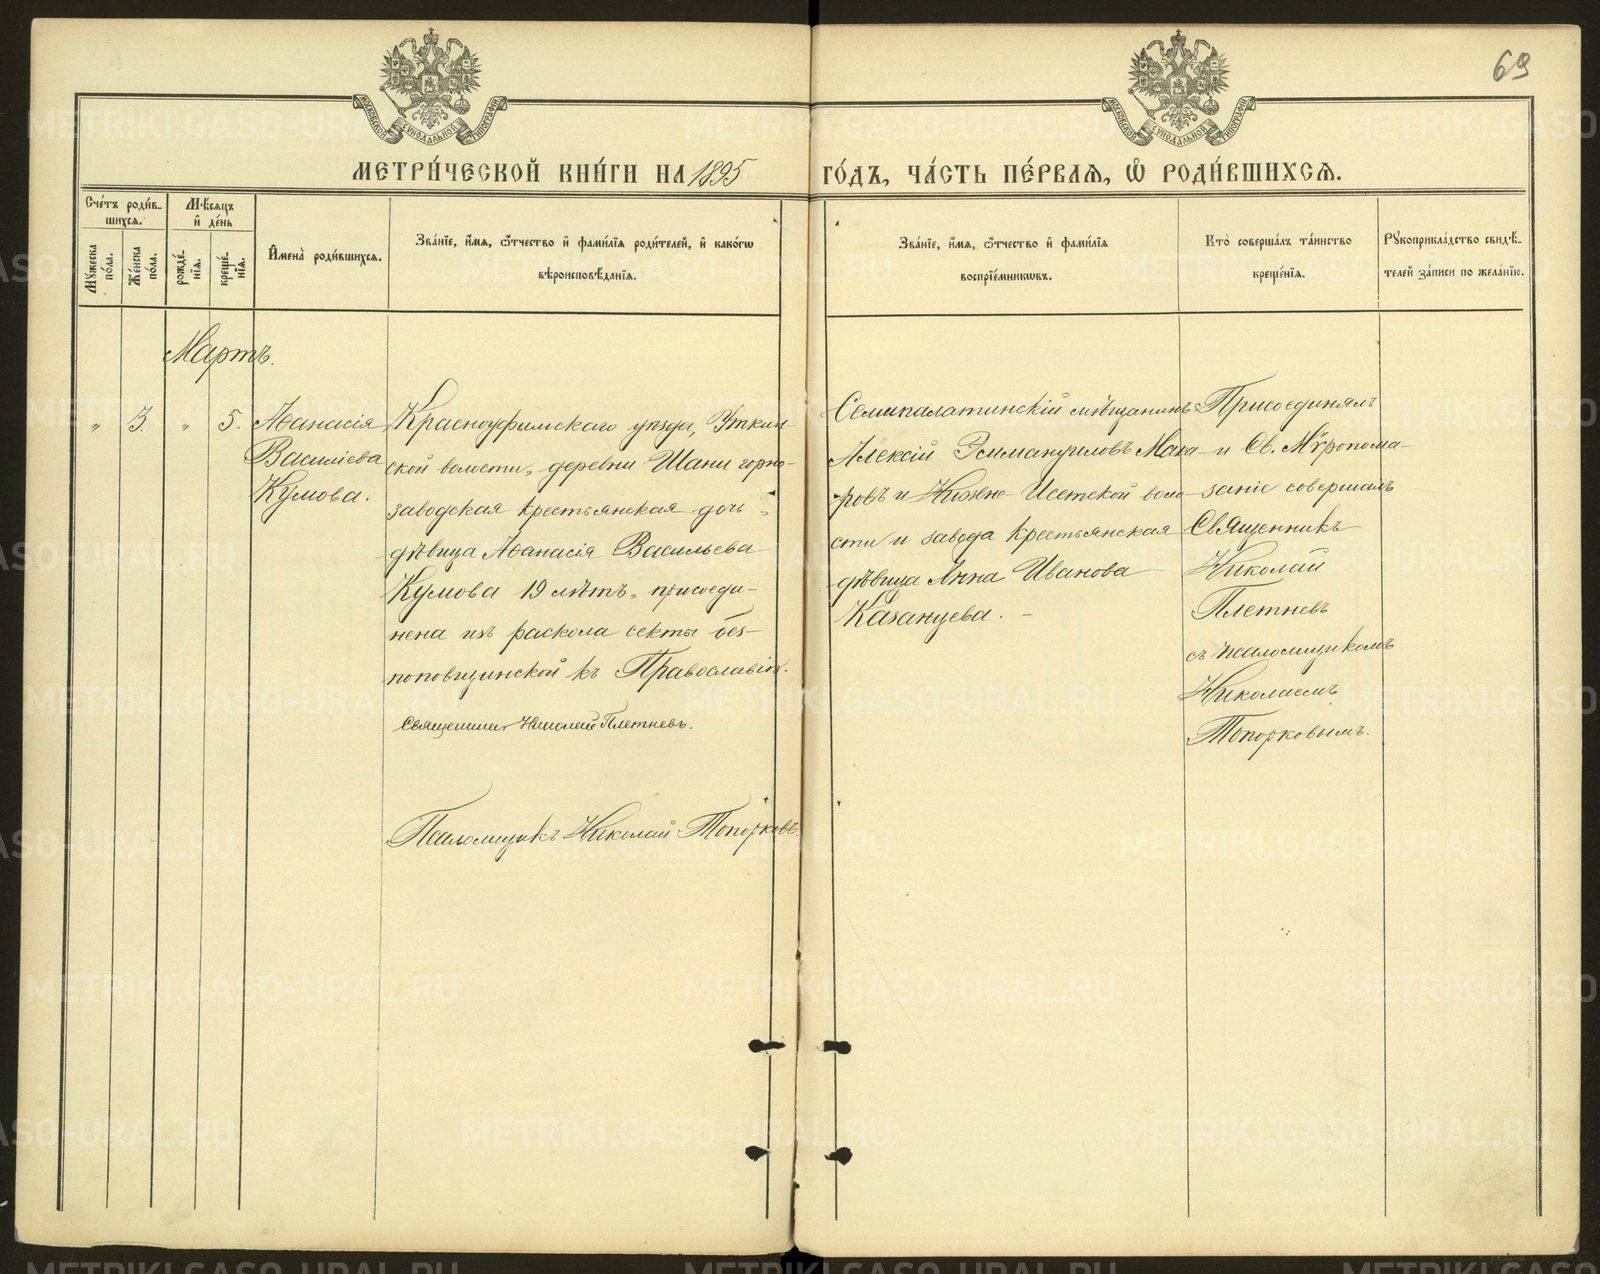 69
МОСКОВСКОЙ СѴНОДАЛЬНОЙ ТИПОГРАФІИ
МОСКОВСКОЙ СѴНОДАЛЬНОЙ ТИПОГРАФІИ
МЕТРИ́ЧЕСКОЙ КНИ́ГИ НА 1895 ГО́ДЪ, ЧА́СТЬ ПЕ́РВАЯ, Ѡ РОДИ́ВШИХСЯ.
Сче́тъ роди́в-
шихся.
Мꙋ́жеска
по́ла.
Же́нска
по́ла.
Мѣ́сяцъ
и де́нь
рожде́-
нїя.
креще́-
нїя.
Имена̀ роди́вшихся.
Зва́нїе, и́мя, ѻ́тчество и фами́лїя роди́телей, и како́гѡ
вѣроисповѣ́данїя.
Зва́нїе, и́мя, ѻ́тчество и фами́лїя
воспрїе́мникѡвъ.
Кто̀ соверша́лъ та́инство
креще́нїя.
Рꙋкоприкла́дство свидѣ́-
телей за́писи по жела́нїю.
Мартъ.
„ 3. „ 5.
Аѳанасія
Васильева
Кумова.
Красноуфимскаго уѣзда, Уткин
ской волости, деревни Шани горно-
заводская крестьянская дочь,
дѣвица Аѳанасія Васильева
Кумова 19 лѣтъ, присоеди-
нена изъ раскола секты без-
поповщинской къ Православію.
Священникъ Николай Плетневъ.
Псаломщикъ Николай Топорковъ.
Семипалатинскій мѣщанинъ
Алексій Эммануиловъ Мака
ровъ и Нижне-Исетской воло
сти и завода крестьянская
дѣвица Анна Иванова
Казанцева. -
Присоединялъ
и Св. Мѵропома-
заніе совершалъ
Священникъ
Николай
Плетневъ
съ псаломщикомъ
Николаемъ
Топорковымъ.
METRIKI.GASO-URAL.RU